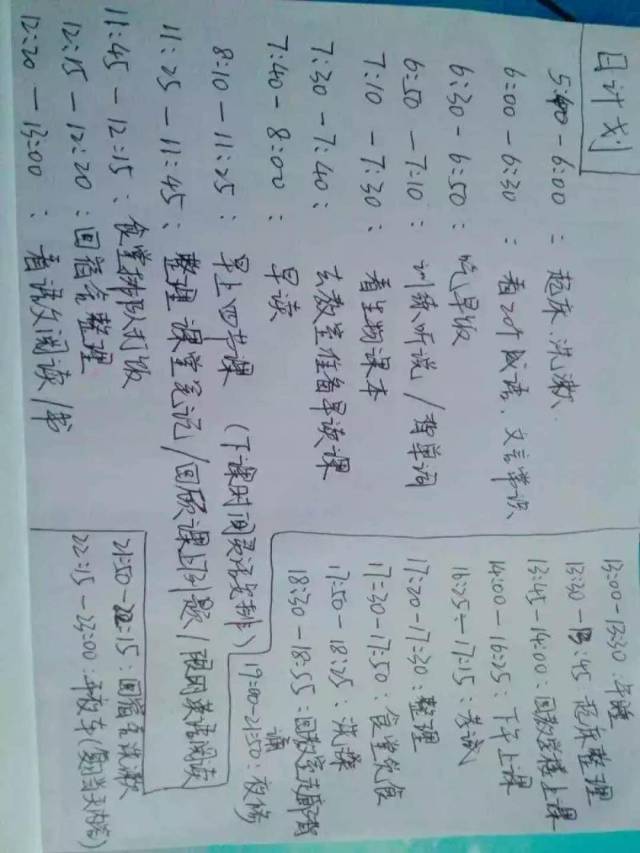 日计划
5:40-6:00：起床.洗漱.
6:00-6:30：看20个成语、文言常识
6:30-6:50：吃早饭
6:50-7:10：训练听说/背单词
7:10-7:30：看生物课本
7:30-7:40：去教室准备早读课
7:40-8:00：早读
8:10-11:25：早上四节课（下课时间灵活安排）
11:25-11:45：整理课堂笔记/回顾课上习题/限时英语阅读
11:45-12:15：食堂排队打饭
12:15-12:20：回宿舍整理
12:20-13:00：看语文阅读/书
13:00-13:30：午睡
13:30-13:45：起床整理
13:45-14:00：回教学楼上课
14:00-16:25：下午上课
16:25-17:15：考试
17:20-17:30：整理
17:30-17:50：食堂饮食
17:50-18:25：洗澡
18:30-18:55：回教室走廊背诵
19:00-21:50：夜修
21:50-22:15：回宿舍洗漱
22:15-23:00：开夜车（复习当天内容）